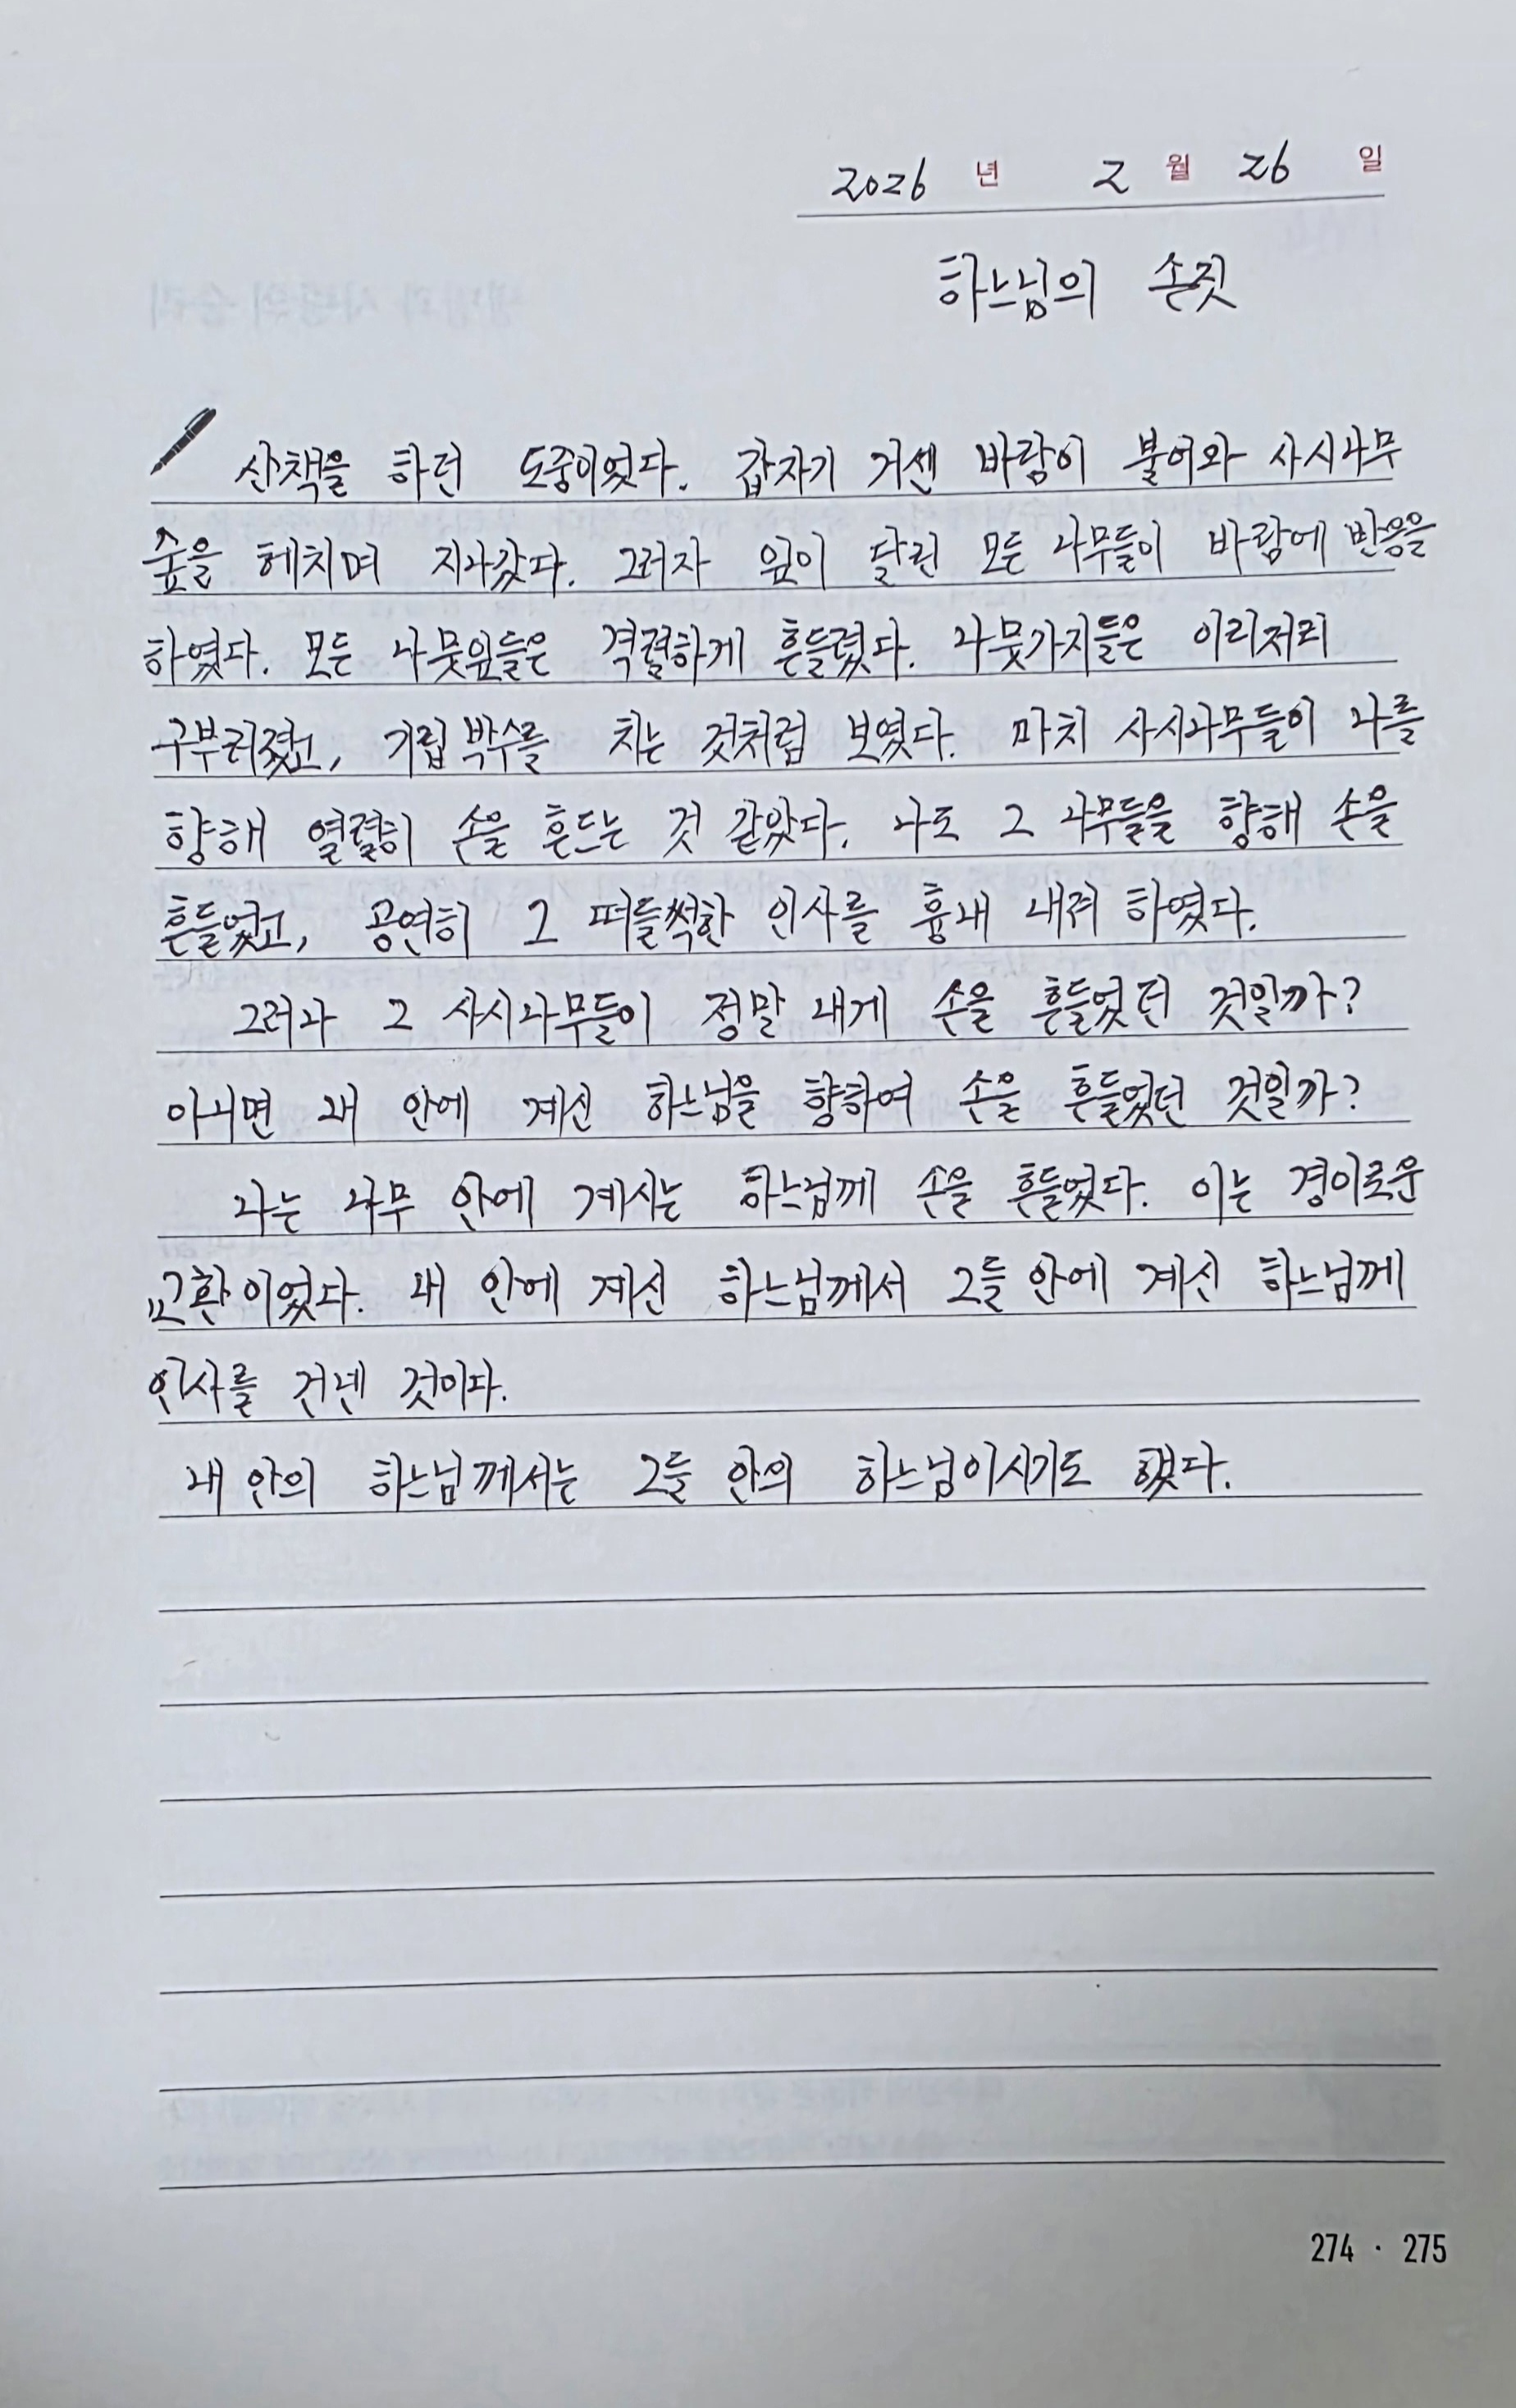 2026 년 2 월 26 일
하느님의 손짓
산책을 하던 도중이었다. 갑자기 거센 바람이 불어와 사시나무
숲을 헤치며 지나갔다. 그러자 잎이 달린 모든 나무들이 바람에 반응을
하였다. 모든 나뭇잎들은 격렬하게 흔들렸다. 나뭇가지들은 이리저리
구부러졌고, 기립 박수를 치는 것처럼 보였다. 마치 사시나무들이 나를
향해 열렬히 손을 흔드는 것 같았다. 나도 그 나무들을 향해 손을
흔들었고, 공연히 그 떠들썩한 인사를 흉내 내려 하였다.
그러나 그 사시나무들이 정말 내게 손을 흔들었던 것일까?
아니면 내 안에 계신 하느님을 향하여 손을 흔들었던 것일까?
나는 나무 안에 계시는 하느님께 손을 흔들었다. 이는 경이로운
교환이었다. 내 안에 계신 하느님께서 그들 안에 계신 하느님께
인사를 건넨 것이다.
내 안의 하느님께서는 그들 안의 하느님이시기도 했다.
274 · 275